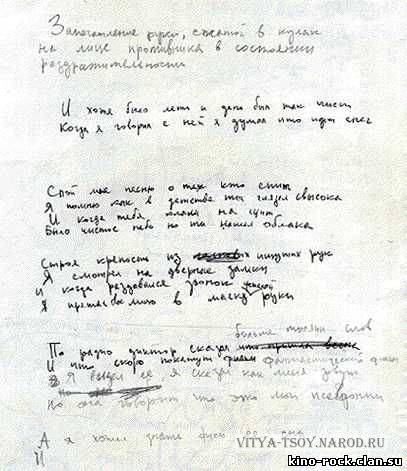 Запечатление руки, сжатой в кулак
на лице противника в состоянии
раздражительности
И хотя было лето и день был так чист
Когда я говорил с ней я думал что идет снег
Спой мне песню о тех кто спит
Я помню как в детстве ты глядел свысока
И когда тебя на щит
Было чистое небо но ты нашел облака
Строя крепость из ищущих рук
Я смотрел на дверные замки
И когда раздавался звонок
Я прятал лицо в маску руки
больше тысячи слов
По радио диктор сказал что пришла весна
И что скоро покажут фильм фантастический фильм
Я ей я сказал как меня зовут
Но она говорит что это мой псевдоним
А я хотел знать
И
VITYA-TSOY.NAROD.RU
kino-rock.clan.su